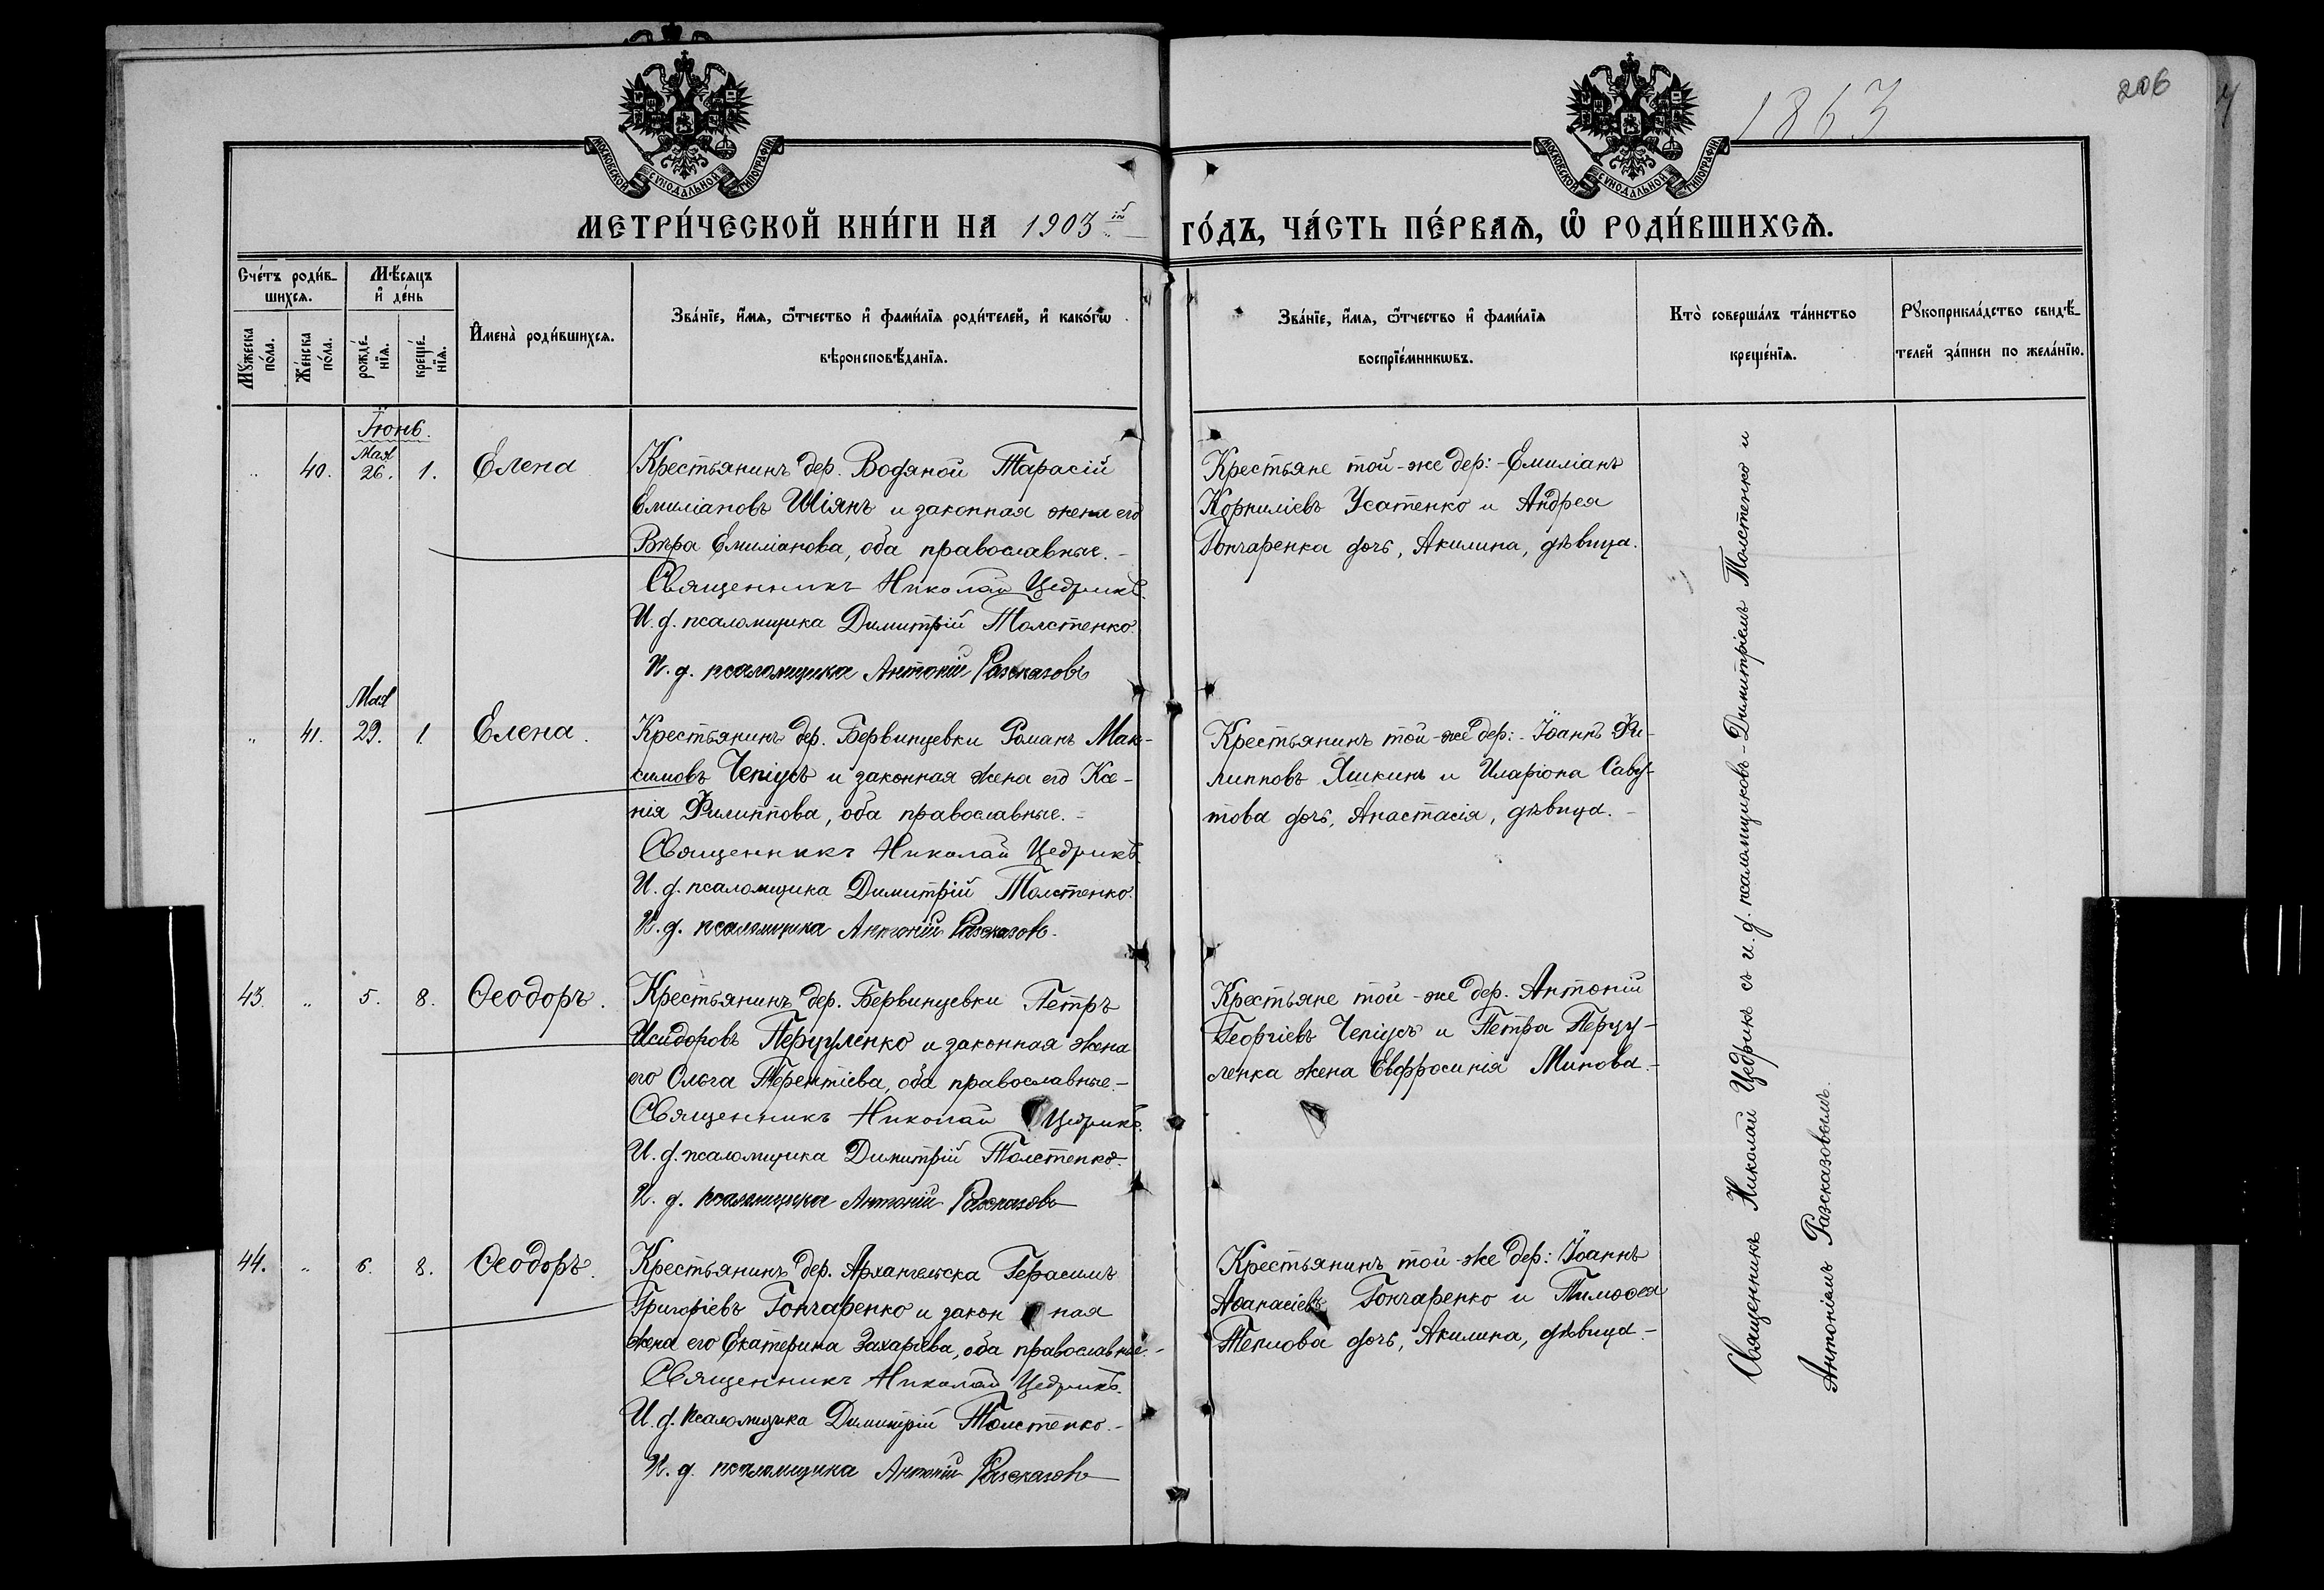 1863
206
МОСКОВСКОЙ СѴНОДАЛЬНОЙ ТИПОГРАФІИ
МОСКОВСКОЙ СѴНОДАЛЬНОЙ ТИПОГРАФІИ
МЕТРИ́ЧЕСКОЙ КНИ́ГИ НА 1903 й ГО́ДЪ, ЧА́СТЬ ПЕ́РВАѦ, Ѡ҆ РОДИ́ВШИХСѦ.
Сче́тъ роди́в-
шихсѧ.
Мꙋжеска по́ла.
Же́нска по́ла.
Мѣ́сѧцъ
и҆ де́нь
рожде́-
нїѧ.
креще́-
нїѧ.
И҆мена̀ роди́вшихсѧ.
Зва́нїе, и҆́мѧ, ѻ҆́тчество и҆ фами́лїѧ роди́телей, и҆ како́гѡ
вѣроисповѣ́данїѧ.
Зва́нїе, и҆́мѧ, ѻ҆́тчество и҆ фами́лїѧ
воспрїе́мникѡвъ.
Кто̀ соверша́лъ та́инство
креще́нїѧ.
Рꙋкоприкла́дство свидѣ́-
телей за́писи по жела́нїю.
Іюнь.
Мая
" 40. 26. 1. Елена
Крестьянинъ дер. Водяной Тарасій
Емиліановъ Шіянъ и законная жена его
Вѣра Емиліанова, оба православные.
Священникъ Николай Цедрикъ.
И. д. псаломщика Димитрій Толстенко.
И. д. псаломщика Антоній Разсказовъ
Крестьяне той-же дер:-Емиліанъ
Корниліевъ Усатенко и Андрея
Гончаренка дочь, Акилина, дѣвица.
Мая
" 41. 29. 1. Елена.
Крестьянинъ дер. Бервинцевки Романъ Мак-
симовъ Чепіусъ и законная жена его Ксе-
нія Филиппова, оба православные.
Священникъ Николай Цедрикъ.
И. д. псаломщика Димитрій Толстенко.
И. д. псаломщика Антоній Разсказовъ.
Крестьянинъ той-же дер:-Іоаннъ Фи-
липповъ Яшкинъ и Иларіона Саву-
това дочь, Анастасія, дѣвица.
43. " 5. 8. Ѳеодоръ.
Крестьянинъ дер. Бервинцевки Петръ
Исидоровъ Перцуленко и законная жена
его Ольга Терентіева, оба православные.-
Священникъ Николай Цедрикъ.
И. д. псаломщика Димитрій Толстенко.
И. д. псаломщика Антоній Разсказовъ
Крестьяне той-же дер. Антоній
Георгіевъ Чепіусъ и Петра Перцу-
ленка жена Евфросинія Минова.-
44. " 6. 8. Ѳеодоръ.
Крестьянинъ дер. Архангельска Герасимъ
Григоріевъ Гончаренко и закон ная
жена его Екатерина Захаріева, оба православные.-
Священникъ Николай Цедрикъ.
И. д. псаломщика Димитрій Толстенко.-
И. д. псаломщика Антоній Разсказовъ
Крестьянинъ той-же дер: Іоаннъ
Аѳанасіевъ Гончаренко и Тимоѳея
Теплова дочь, Акилина, дѣвица-
Священникъ Николай Цедрикъ съ и. д. псаломщиковъ-Димитріемъ Толстенко и
Антоніемъ Разсказовымъ.